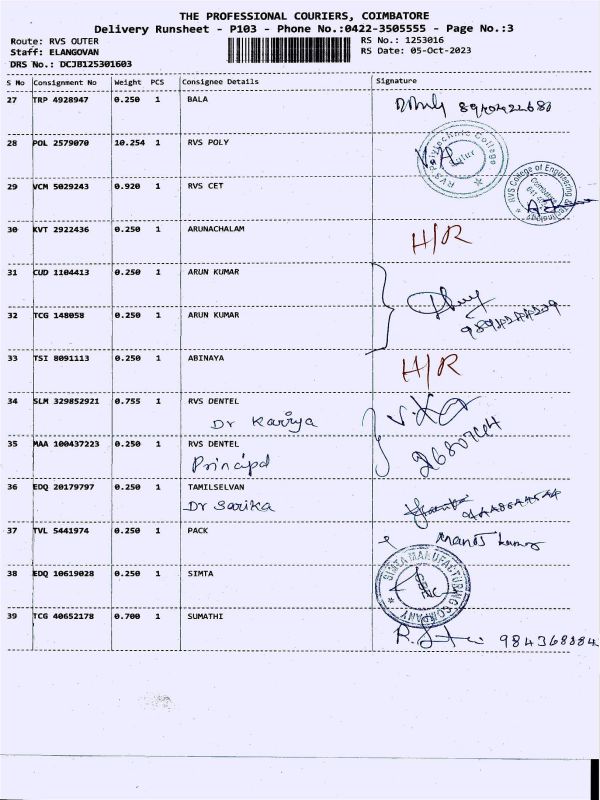 THE PROFESSIONAL COURIERS, COIMBATORE
Delivery Runsheet - P103 - Phone No.:0422-3505555 - Page No.:3
Route: RVS OUTER RS No.: 1253016
Staff: ELANGOVAN RS Date: 05-Oct-2023
DRS No.: DCJB125301603
S No Consignment No Weight PCS Consignee Details Signature
27 TRP 4928947 0.250 1 BALA
28 POL 2579070 10.254 1 RVS POLY
RVS Polytechnic College
29 VCM 5029243 0.920 1 RVS CET
RVS College of Engineering & Technology
30 KVT 2922436 0.250 1 ARUNACHALAM H/R
31 CUD 1104413 0.250 1 ARUN KUMAR
32 TCG 148058 0.250 1 ARUN KUMAR
33 TSI 8091113 0.250 1 ABINAYA H/R
34 SLM 329852921 0.755 1 RVS DENTEL
Dr Kaviya
35 MAA 100437223 0.250 1 RVS DENTEL
Principal
36 EDQ 20179797 0.250 1 TAMILSELVAN
Dr Sarika
37 TVL 5441974 0.250 1 PACK Manoj kumar
38 EDQ 10619028 0.250 1 SIMTA
SIMTA MANUFACTURING COMPANY
39 TCG 40652178 0.700 1 SUMATHI
984368884